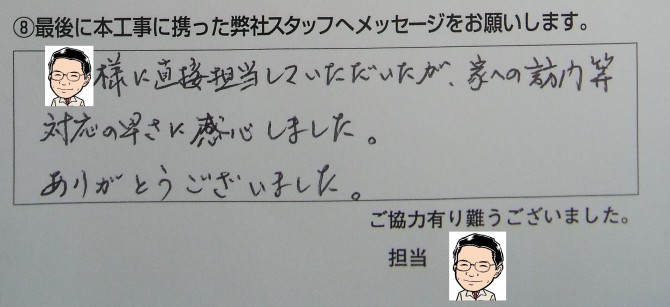 ⑧最後に本工事に携った弊社スタッフへメッセージをお願いします。
様に直接担当していただいたが、家への訪問等
対応の早さに感心しました。
ありがとうございました。
ご協力有り難うございました。
担当